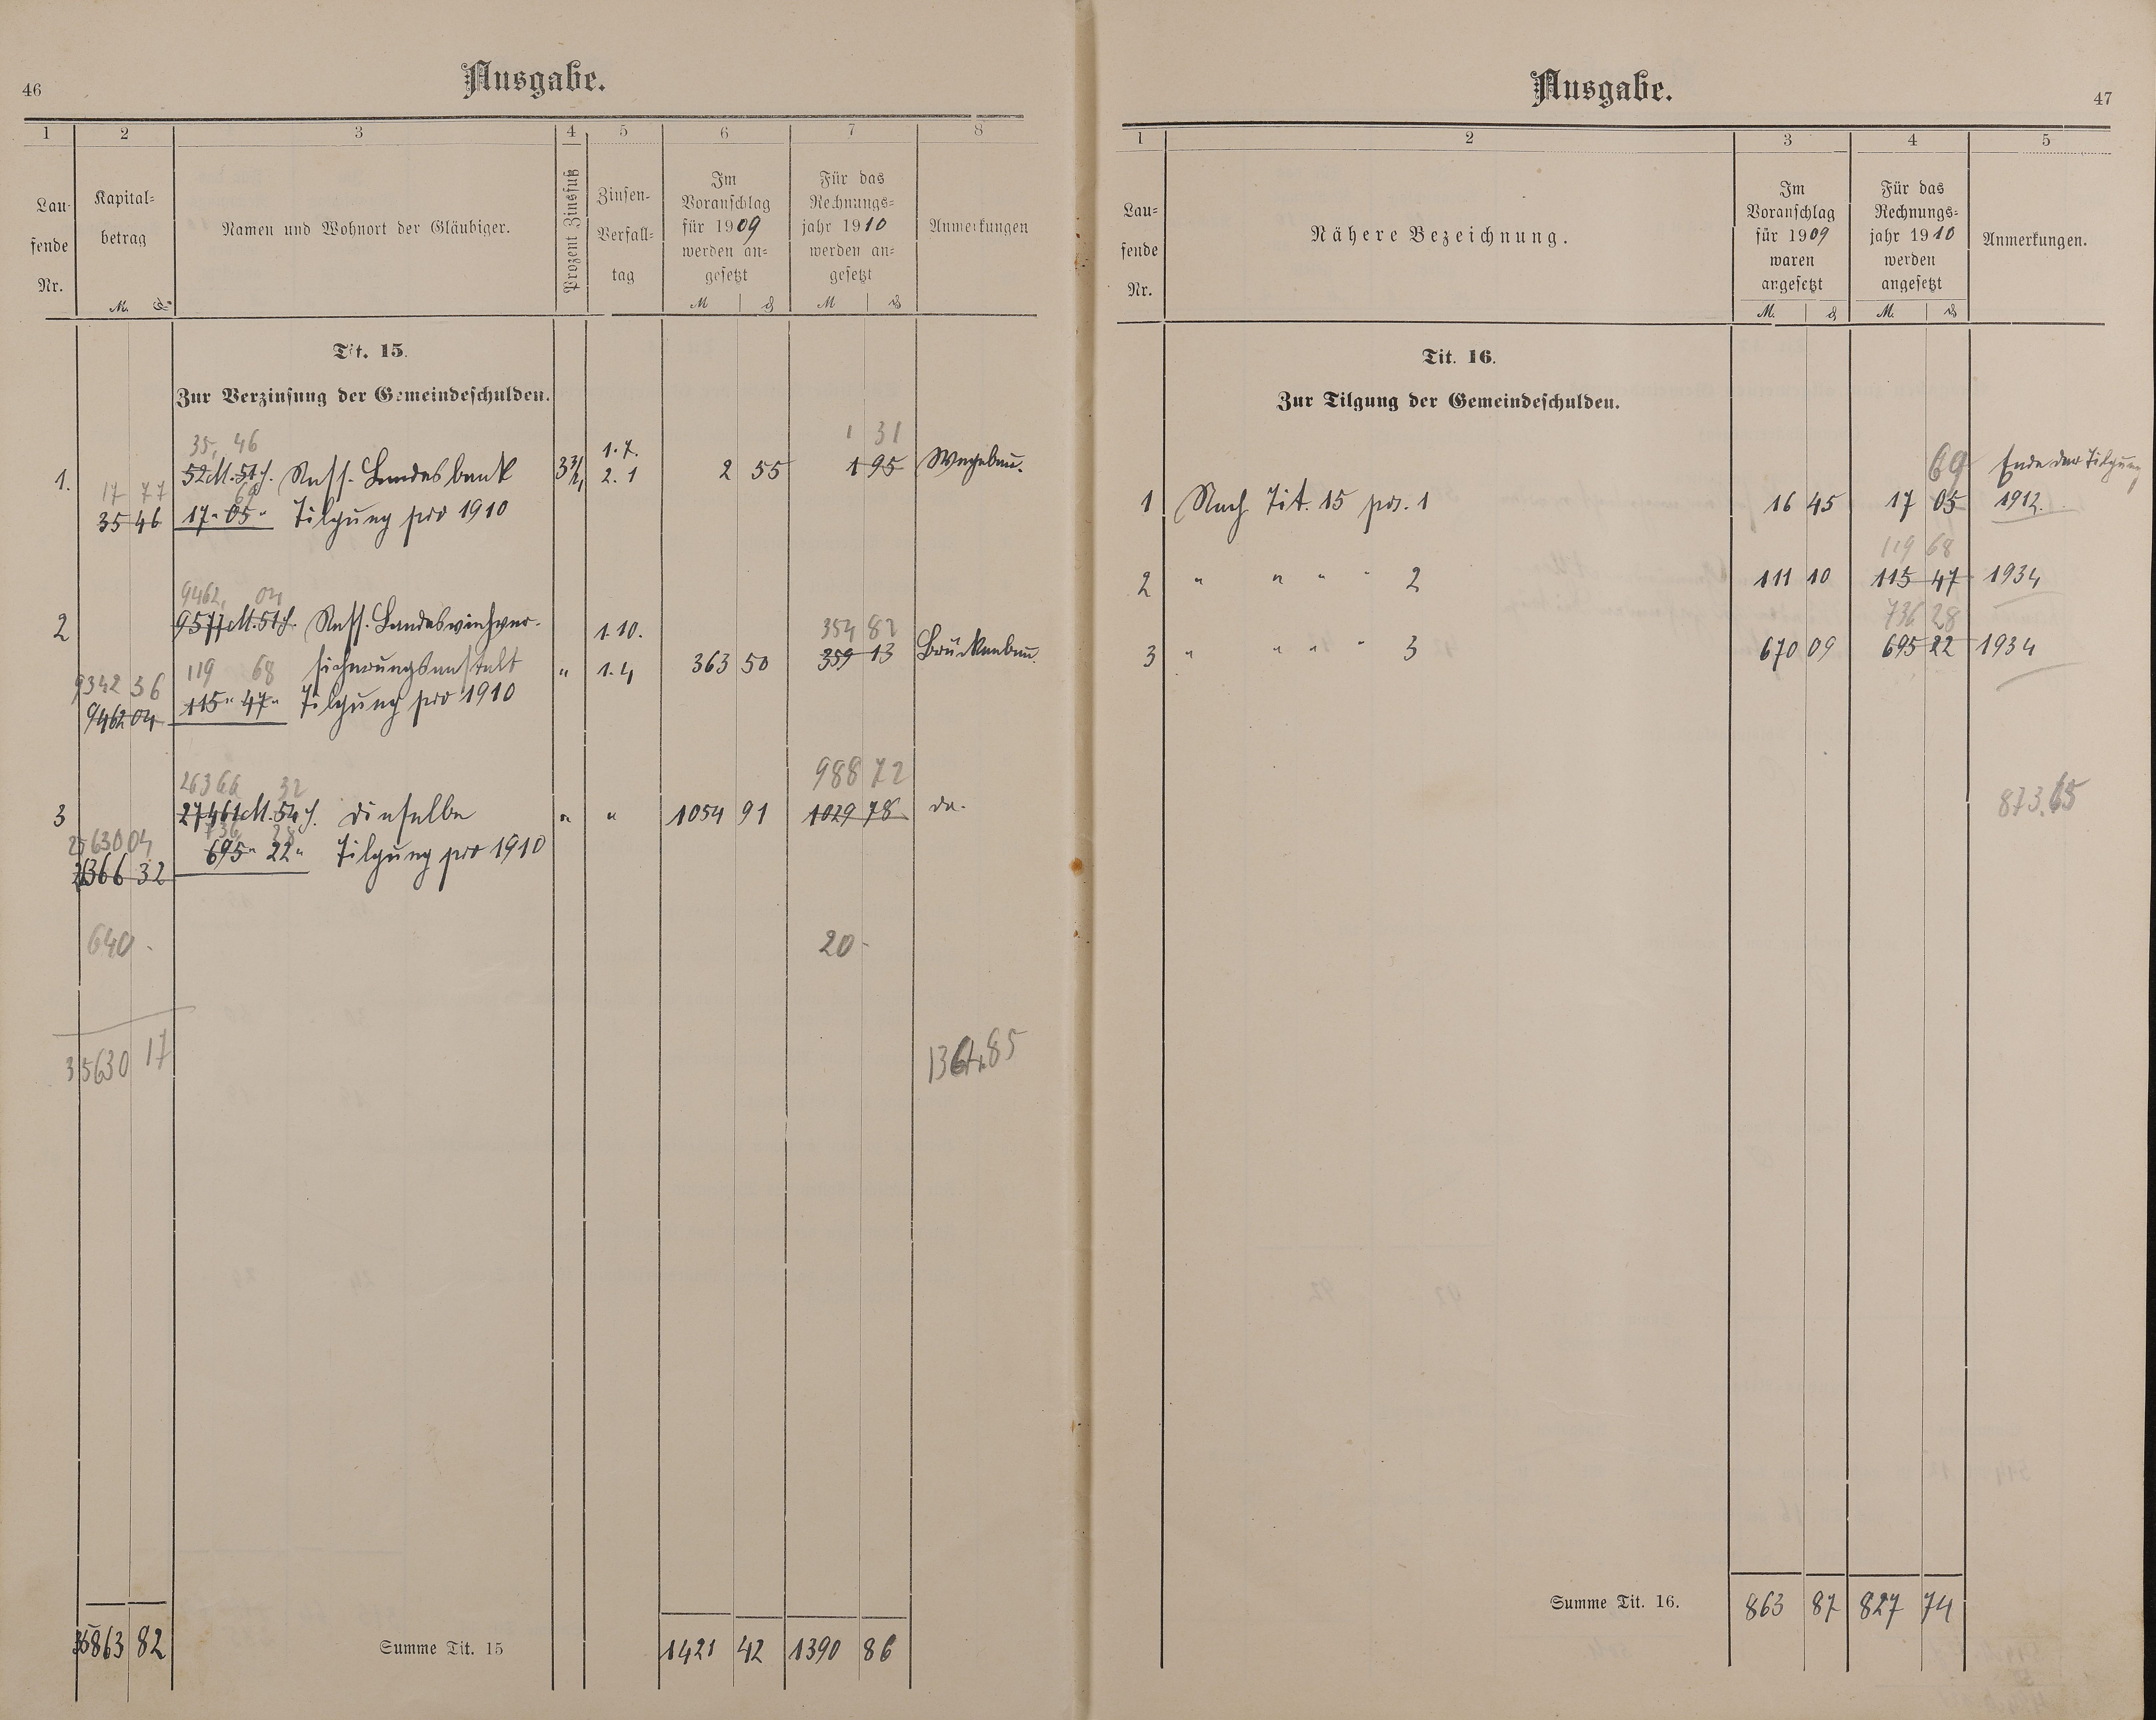 46
Ausgabe.
1 2 3 4 5 6 7 8
Lau-
fende
Nr.
Kapital-
betrag
M. ₰
Namen und Wohnort der Gläubiger.
Prozent Zinsfuß
Zinsen-
Verfall-
tag
Im
Voranschlag
für 1909
werden an-
gesetzt
M ₰
Für das
Rechnungs-
jahr 1910
werden an-
gesetzt
M ₰
Anmerkungen
Tit. 15.
Zur Verzinsung der Gemeindeschulden.
35, 46 1 31
1. 52 M. 51 ₰. Nass. Landesbank 3¾ 1.7. 2.1 2 55 1 95 Wegebau.
17 77 69
35 46 17 " 05 " Tilgung pro 1910
9462, 04
2 9577 M. 51 ₰. Nass. Landesviehver- 1.10. 354 82
119 68 sicherungsanstalt " 1.4 363 50 359 13 Brückenbau.
9342 36
9462 04 115 " 47 " Tilgung pro 1910
26366 32 988 72
3 27461 M. 54 ₰. dieselbe " " 1054 91 1029 78 do.
25630 04 736 28
26366 32 695 " 22 " Tilgung pro 1910
640 - 20 -
35630 17 1364.85
35863 82 Summe Tit. 15 1421 42 1390 86
47
Ausgabe.
1 2 3 4 5
Lau-
fende
Nr.
Nähere Bezeichnung.
Im
Voranschlag
für 1909
waren
angesetzt
M. ₰
Für das
Rechnungs-
jahr 1910
werden
angesetzt
M. ₰
Anmerkungen.
Tit. 16.
Zur Tilgung der Gemeindeschulden.
69 Ende der Tilgung
1 Nach Tit. 15 pos. 1 16 45 17 05 1912.
119 68
2 " " " " 2 111 10 115 47 1934
736 28
3 " " " " 3 670 09 695 22 1934
873.65
Summe Tit. 16. 863 87 827 74